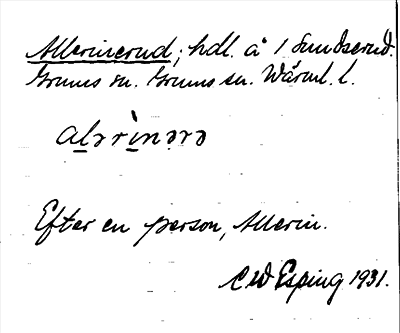 Allerinerud; hdl. å 1 Sundserud.
Grums sn. Grums sn. Wärml. l.
alərinərə
Efter en person, Allerin.
C W Esping 1931.